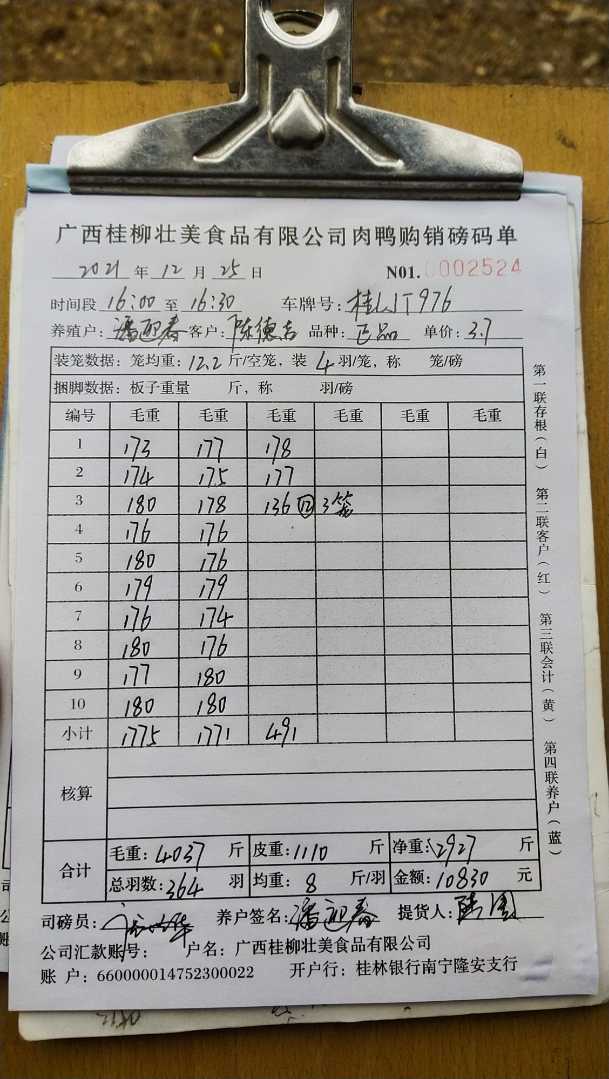 广西桂柳壮美食品有限公司肉鸭购销磅码单
2021 年 12 月 25 日 N01. 0002524
时间段 16:00 至 16:30 车牌号: 桂LJT976
养殖户: 潘迎春 客户: 陈德吉 品种: 正品 单价: 3.7
装笼数据: 笼均重: 12.2 斤/空笼, 装 4 羽/笼, 称 笼/磅
捆脚数据: 板子重量 斤, 称 羽/磅
编号 毛重 毛重 毛重 毛重 毛重 毛重
1 173 177 178
2 174 175 177
3 180 178 136 ⑫ 3笼
4 176 176
5 180 176
6 179 179
7 176 174
8 180 176
9 177 180
10 180 180
小计 1775 1771 491
核算
合计
毛重: 4037 斤 皮重: 1110 斤 净重: 2927 斤
总羽数: 364 羽 均重: 8 斤/羽 金额: 10830 元
司磅员: 养户签名: 潘迎春 提货人:
公司汇款账号: 户名: 广西桂柳壮美食品有限公司
账 户: 660000014752300022 开户行: 桂林银行南宁隆安支行
第一联存根(白) 第二联客户(红) 第三联会计(黄) 第四联养户(蓝)